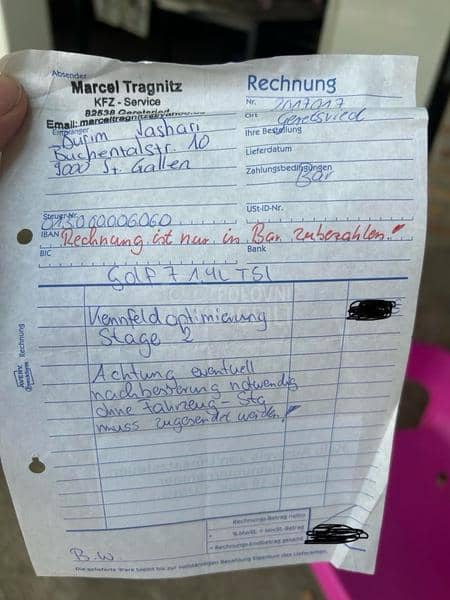 Absender
Marcel Tragnitz
KFZ - Service
82538 Geretsried
Email:
Rechnung
Nr. 2017017
Ort Geretsried
Empfänger
Durim Jashari
Buchentalstr. 10
9000 St. Gallen
Ihre Bestellung
Lieferdatum
Zahlungsbedingungen
Bar
Steuer-Nr.
USt-ID-Nr.
IBAN Rechnung ist nur in Bar zubezahlen!
BIC
Bank
Golf 7 1.4L TSI
Kennfeldoptimierung
Stage 2
Achtung eventuell
nachbesserung notwendig
ohne Fahrzeug - Stg
muss zugesendet werden!
Rechnung
Rechnungs-Betrag netto
+ % MwSt. = MwSt.-Betrag
= Rechnungs-Endbetrag gesamt
B.W.
Die gelieferte Ware bleibt bis zur vollständigen Bezahlung Eigentum des Lieferanten.